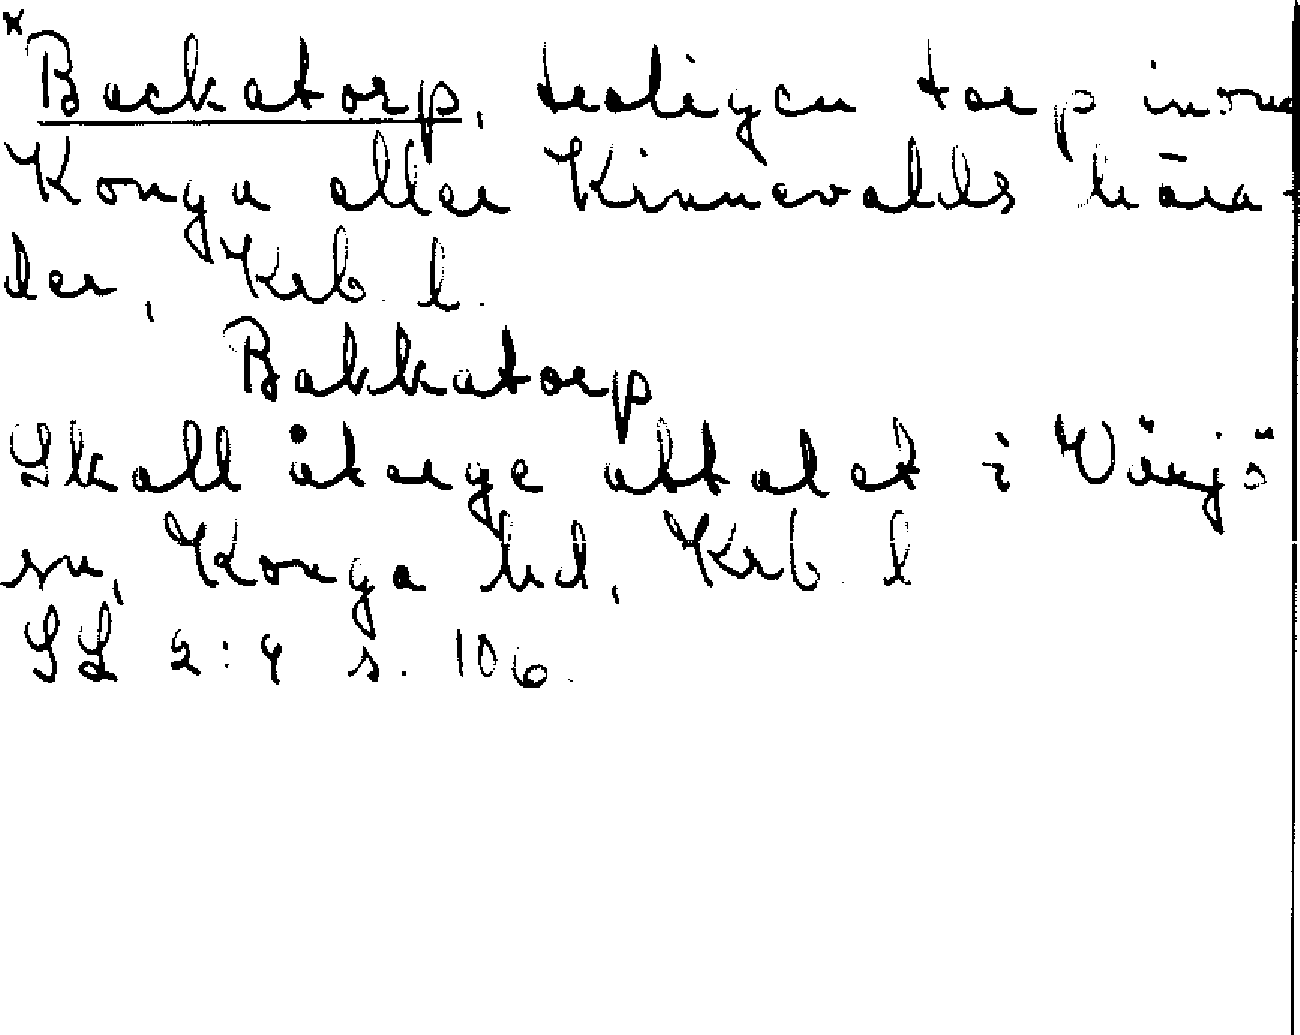 * Backatorp, troligen torp inom
Konga eller Kinnevalds hära-
der, Krb. l.
Bakkatorp
Skall återge uttalet i Växjö
sn, Konga hd, Krb. l
SL 2:4 s. 106.